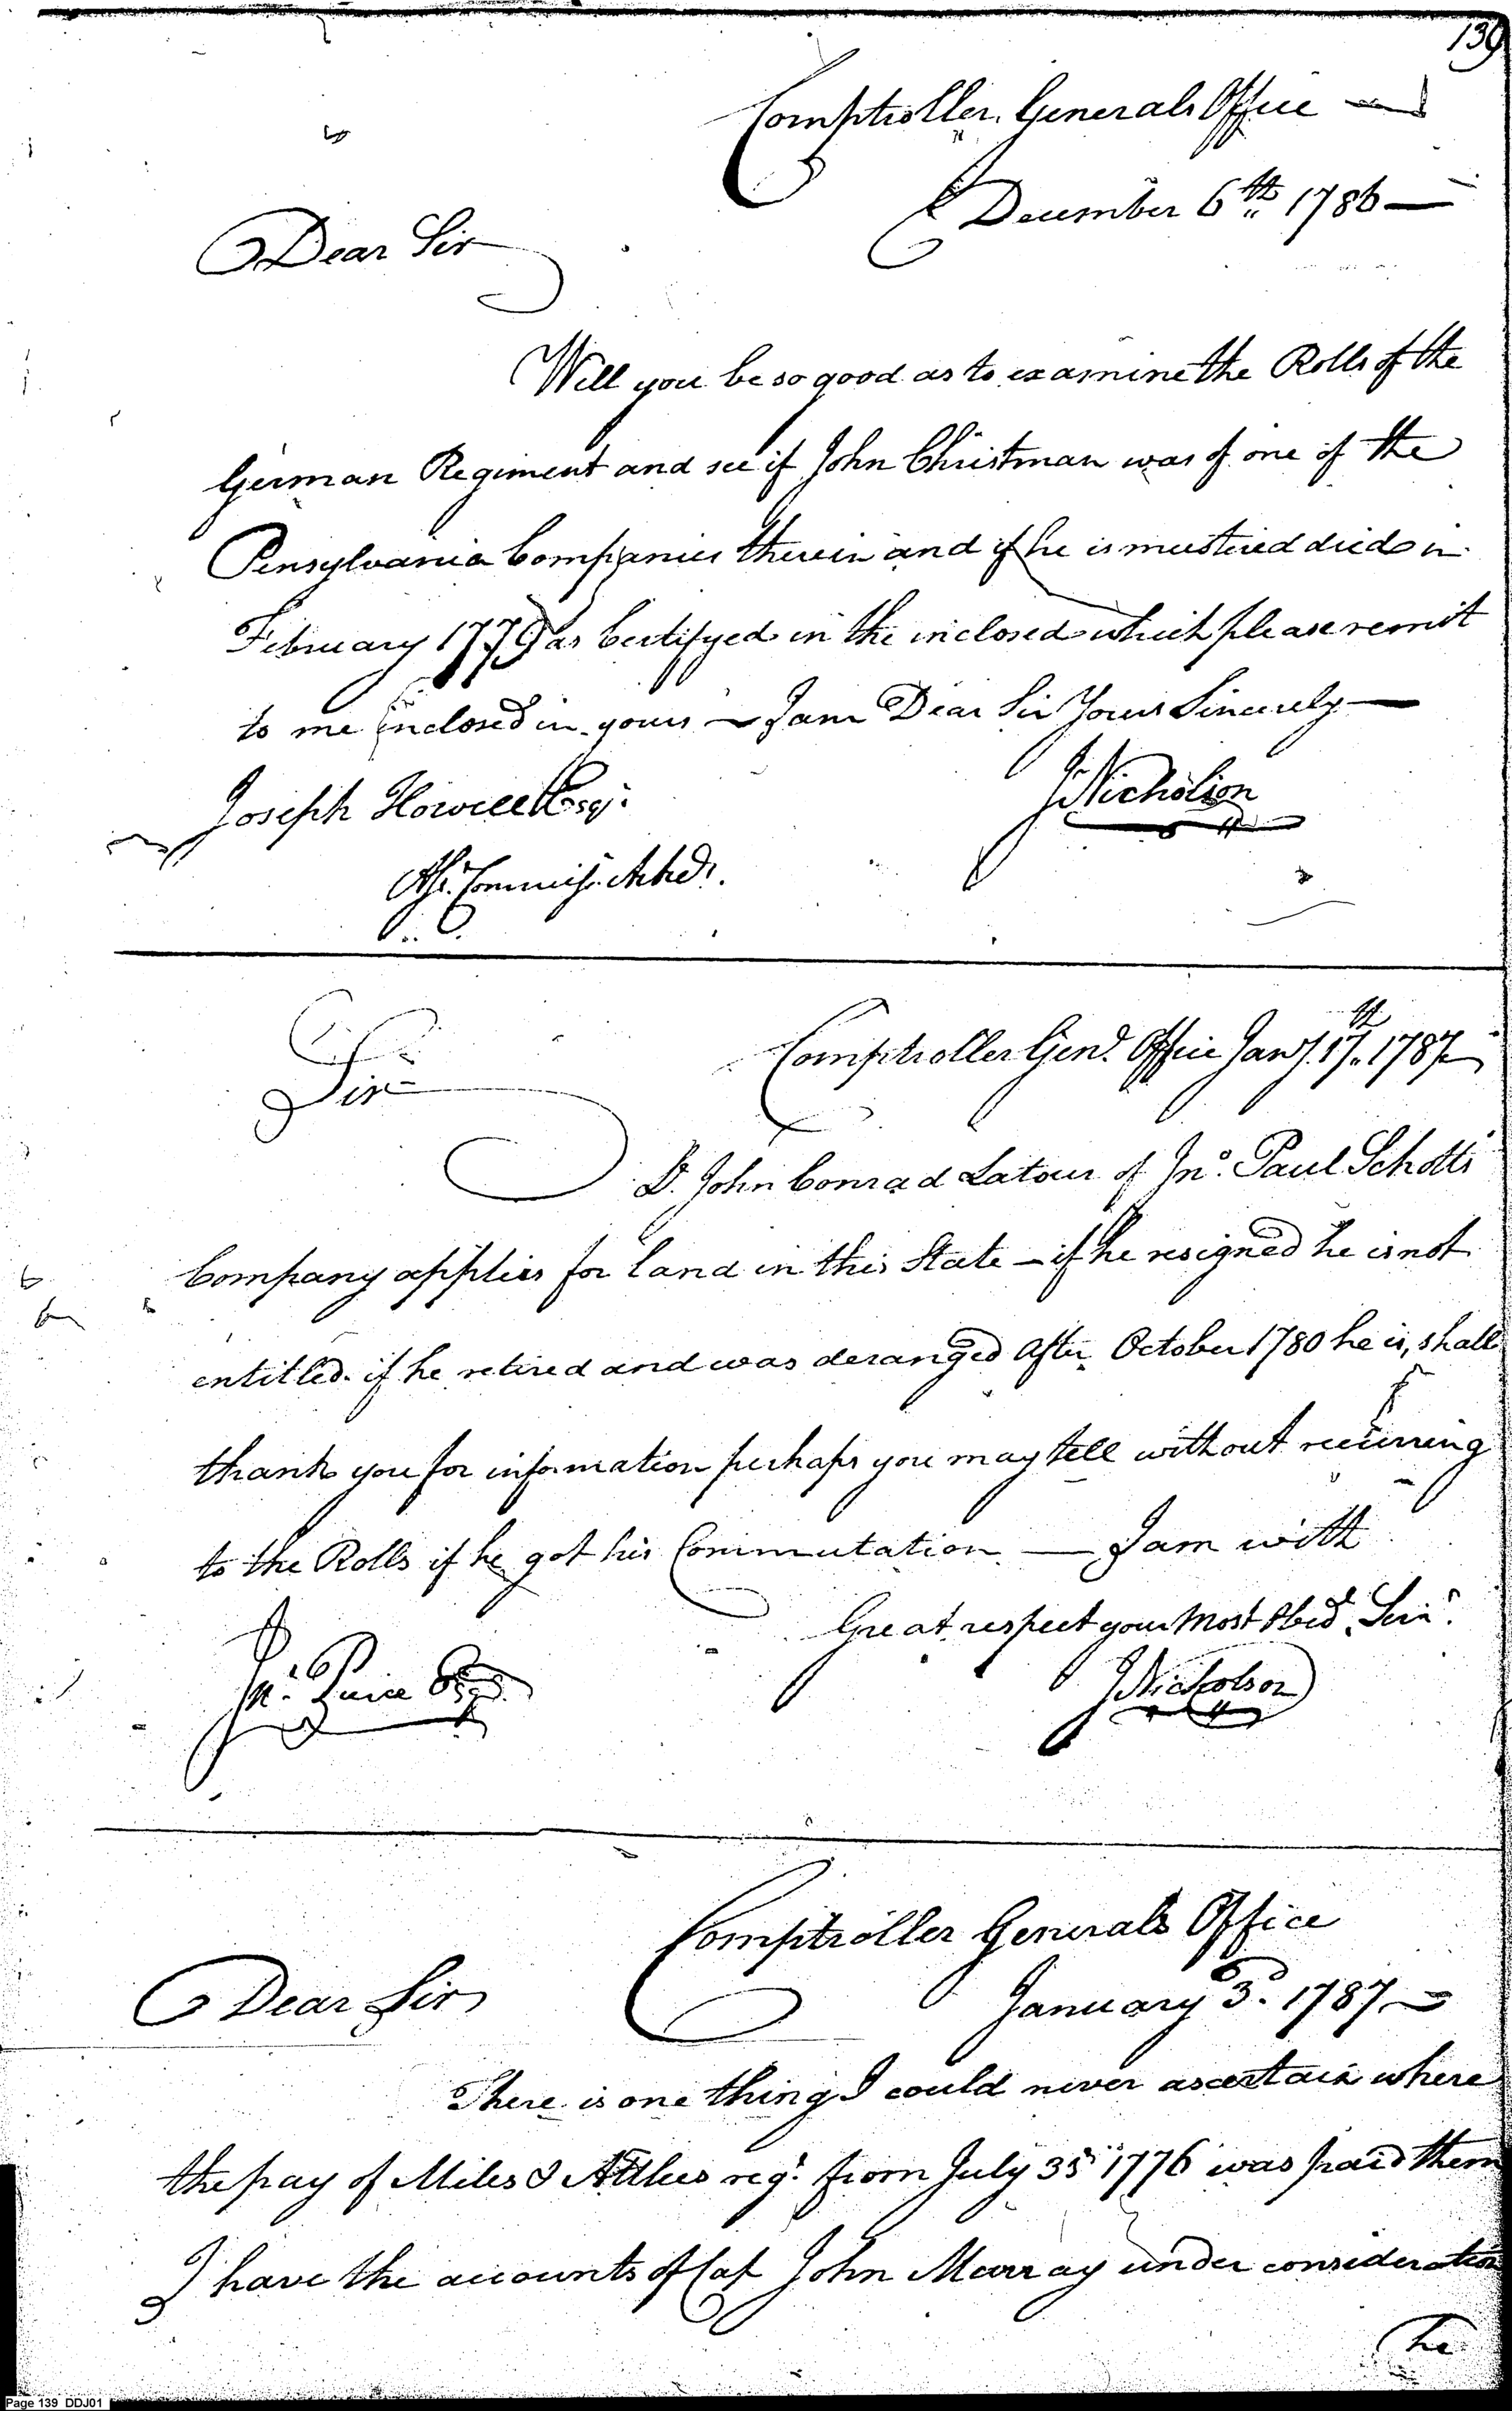 139
Comptroller Generals Office
December 6th 1786
Dear Sir
Will you be so good as to examine the Rolls of the
German Regiment and see if John Christman was of one of the
Pensylvania Companies therein and if he is mustered died in
February 1779 as Certifyed in the inclosed which please remit
to me inclosed in yours – I am Dear Sir Yours Sincerely
Joseph Howell Esqr.
JnNicholson
Asst. Commissr. Accts.
Sir
Comptroller Genl. Office Jany. 17th. 1787
Lt. John Conrad Latour of Jno. Paul Schotts
Company applies for land in this State – if he resigned he is not
entitled if he retired and was deranged after October 1780 he is, shall
thank you for information perhaps you may tell without recurring
to the Rolls if he got his Commutation — I am with
Great respect your Most Obed. Serv.
Pierce Esqr.
JNicholson
Comptroller Generals Office
January 3d. 1787
Dear Sir
There is one thing I could never ascertain where
the pay of Miles & Attlees regt. from July 35 1776 was paid them
I have the accounts of Cap John Murray under consideration
he
Page 139 DDJ01